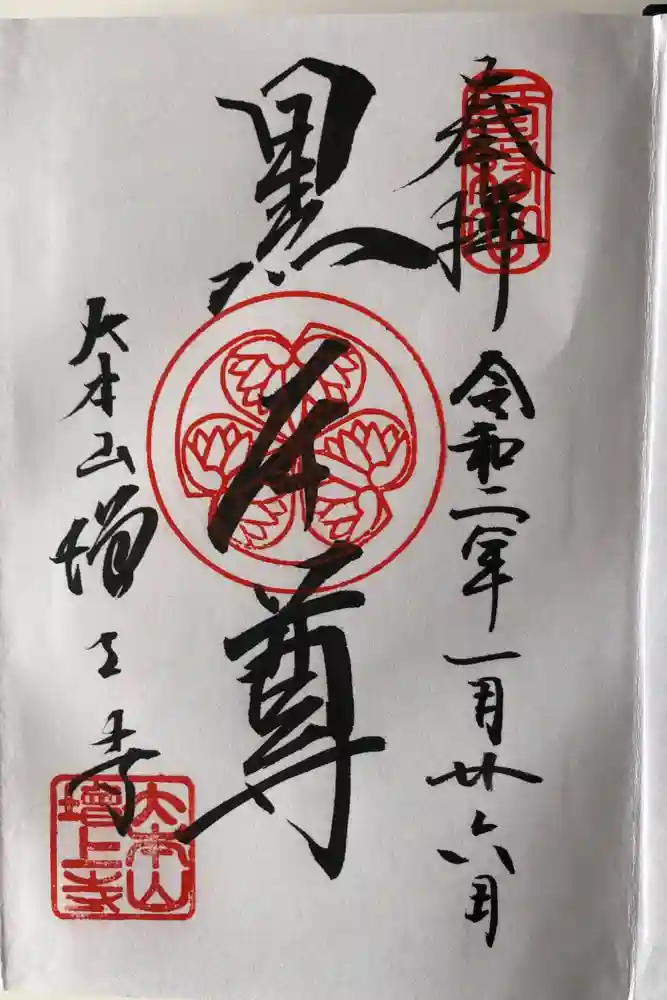 奉拝
令和二年一月廿六日
黒本尊
大本山増上寺
大本山
增上寺